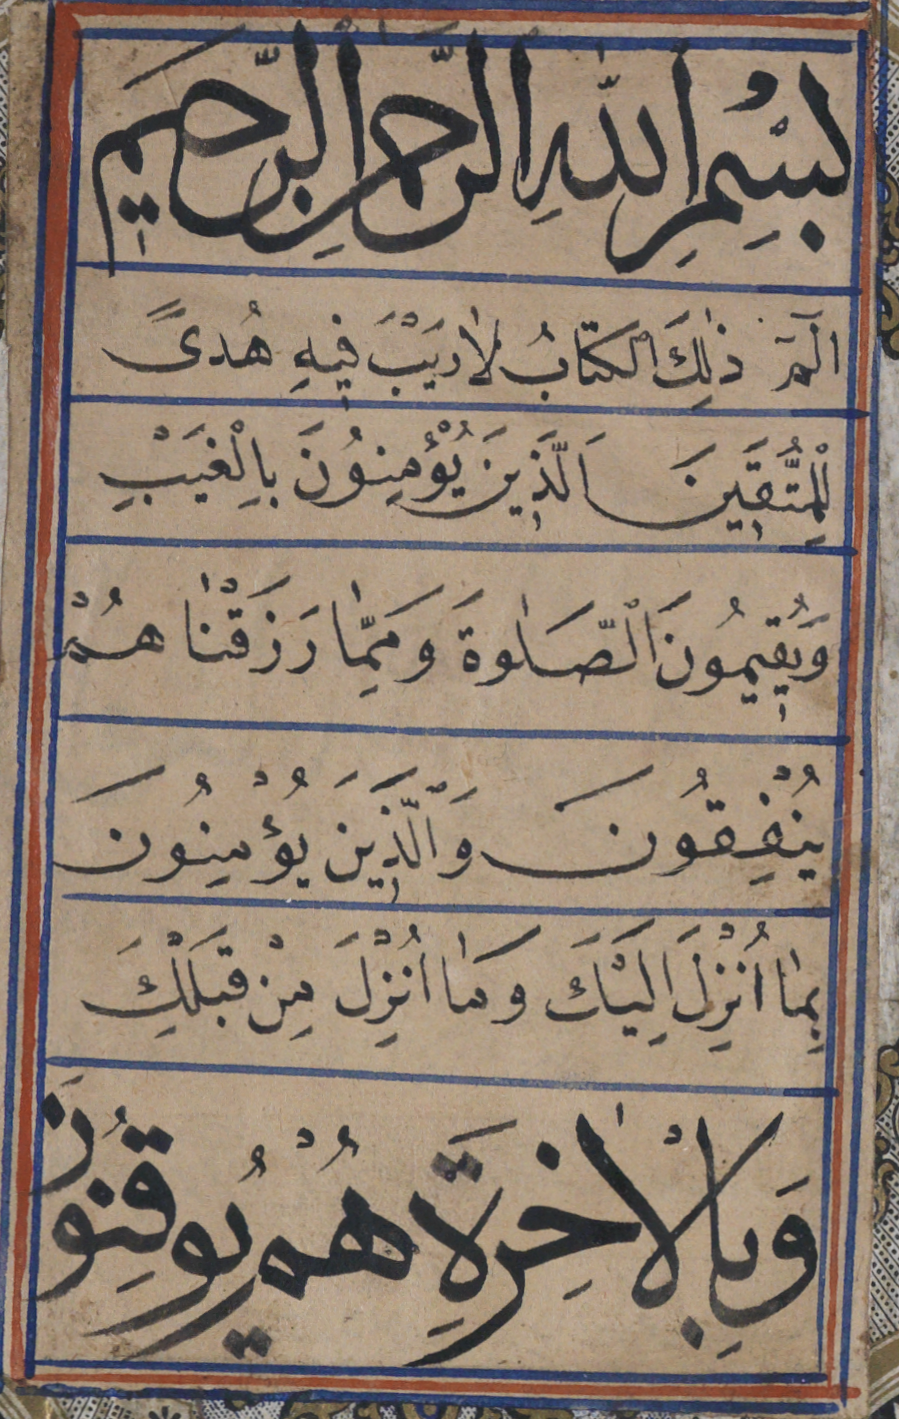 بِسْمِ اللّٰهِ الرَّحْمٰنِ الرَّحِيمِ
الٓمٓ ذٰلِكَ الْكِتَابُ لَا رَيْبَ فِيهِ هُدًى
لِلْمُتَّقِينَ اَلَّذِينَ يُؤْمِنُونَ بِالْغَيْبِ
وَيُقِيمُونَ الصَّلٰوةَ وَمِمَّا رَزَقْنَا هُمْ
يُنْفِقُونَ وَالَّذِينَ يُؤْمِنُونَ
بِمَا اُنْزِلَ اِلَيْكَ وَمَا اُنْزِلَ مِنْ قَبْلِكَ
وَبِالْاٰخِرَةِ هُمْ يُوقِنُونَ